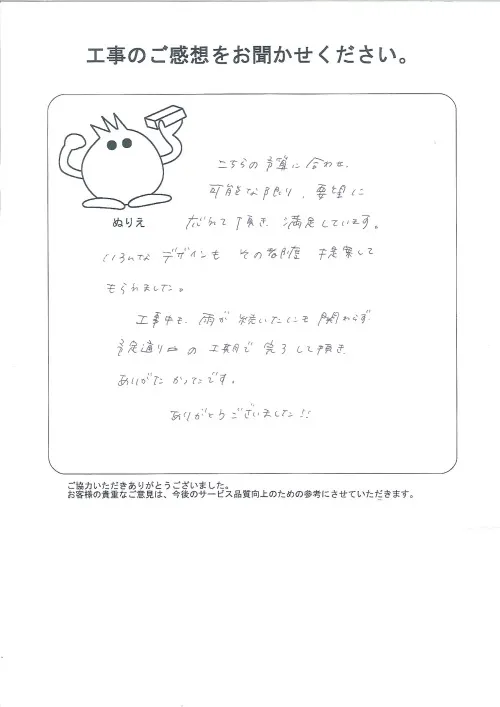 工事のご感想をお聞かせください。
ぬりえ
こちらの予算に合わせ、
可能な限り、要望に
応えて頂き 満足しています。
いろんな デザインも その都度 提案して
もられました。
工事中も、雨が続いたにも関わらず
予定通りの工期で完了して頂き
ありがたかったです。
ありがとうございました!!
ご協力いただきありがとうございました。
お客様の貴重なご意見は、今後のサービス品質向上のための参考にさせていただきます。